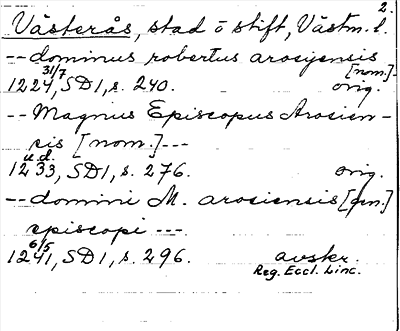 2.
Västerås, stad o stift, Västm. l.
-- dominus robertus arosyensis
[nom.] --
31/7
1224, SD1, s. 240. orig.
-- Magnus Episcopus Arosien-
sis [nom.] ---
u.d.
1233, SD1, s. 276. orig.
-- domini M. arosiensis [gen.]
episcopi ---
6/5
1241, SD1, s. 296. avskr.
Reg. Eccl. Linc.